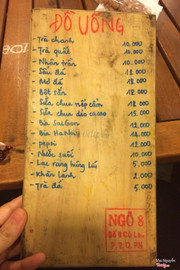 ĐỒ UỐNG
- Trà chanh 10.000
- Trà quất 10.000
- Nhân trần 10.000
- Sấu đá 12.000
- Mơ đá 12.000
- Bột sắn 12.000
- Sữa chua nếp cẩm 12.000
- Sữa chua dẻo cacao 15.000
- Bia Saigon 12.000
- Bia Hanoi 12.000
- pepsi 12.000
- Nước suối 10.000
- Lạc rang húng lìu 5.000
- Khăn lạnh 2.000
- Trà đá 5.000
NGÕ 8